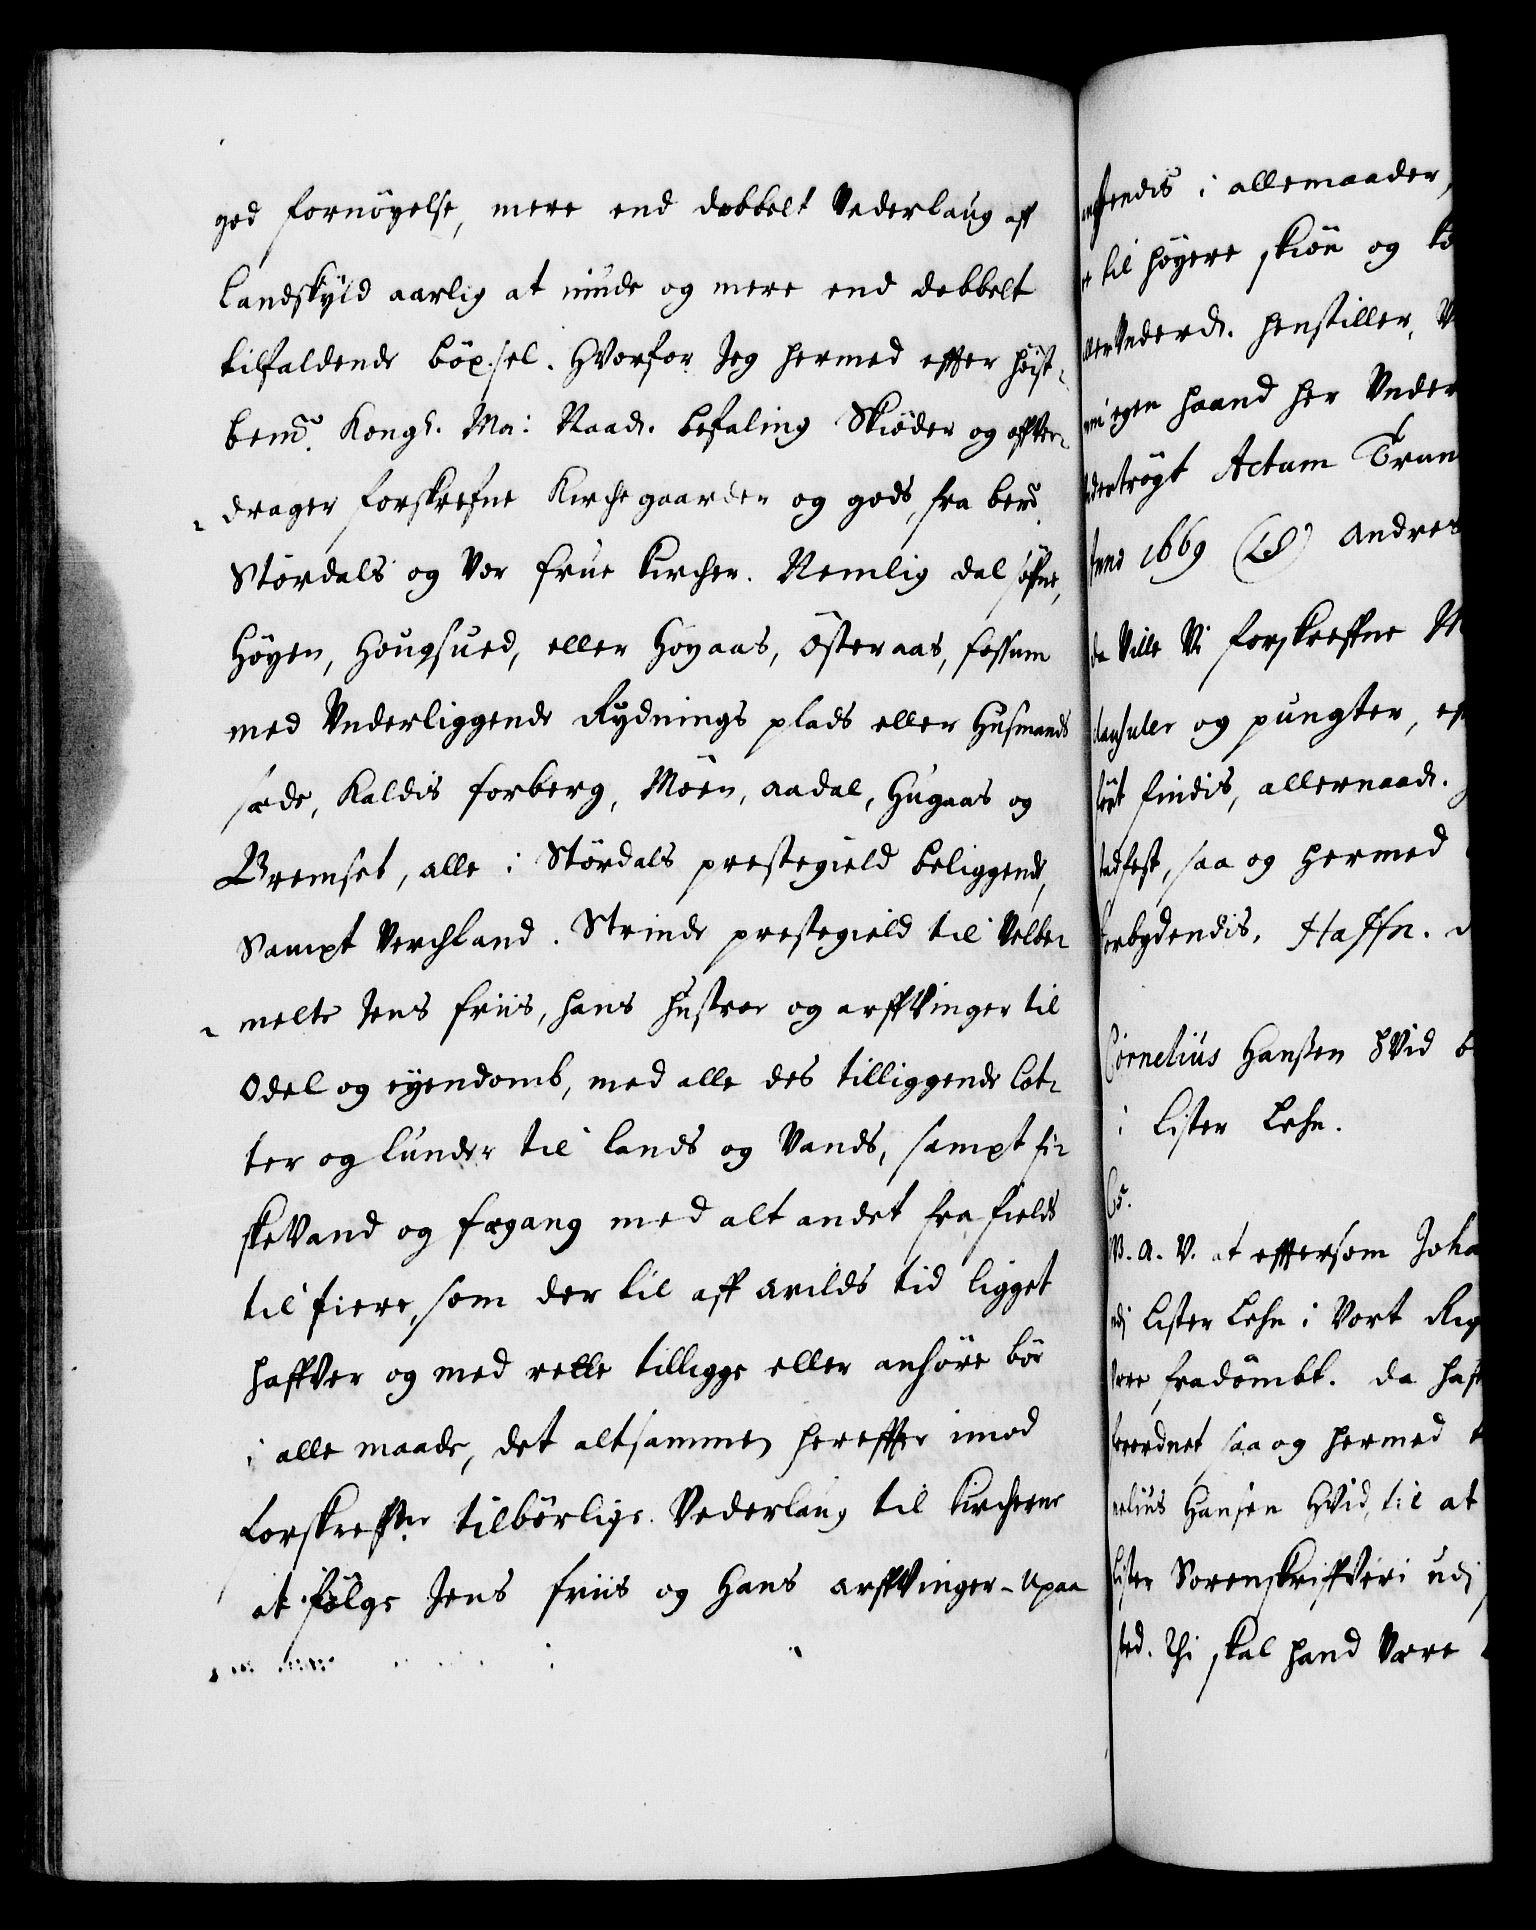 god fornöyelse, mere end dobbelt Vederlaug aff
Landskyld aarlig at niude og mere end dobbelt
tilfaldende böxsel. Hvorfor Jeg hermed effter höist-
bemte. Kongl. Ma: Naads. befaling Skiöder og affVer-
drager forskrefne Kirche gaarder og gods, fra bemte
Stördals og Vor frue Kircher. Nemlig dal söfne,
Höyen, Hougsued, eller Hoyaas, Österaas, fossum
med Vnderliggende Rydnings plads eller Husmands
sæde, Kaldis forberg, Möen, aadal, Hugaas og
Bremset, alle i Stördals prestegield beliggende,
Sampt Verchland. Strinde prestegield til Velbe-
melte Jens friis, hans hustroe og arffVinger til
Odel og eyendomb, med alle des tilliggende lot-
ter og lunder til lands og Vands, sampt fi-
skeVand og fægang med alt andet fra fields
til fiere, som der til aff arilds tid ligget
haffVer og med rette tillige eller anhöre bör
i alle maade, det altsammen hereffter imod
forskreffne tilbörlige Vederlaug til Kircherne
at fölge Jens friis og Hans arffVinger - Upaa
endis i allemaader,
til höyere skiön og
Vnderd. henstiller, V
min egen haand her Vnder
dertrögt Actum Trun
Anno 1669 (LS) Andreas
da Ville Vi forskreffne
clausuler og pungter, ef
findis, allernaad.
stadfest, saa og hermed
forbydendis. Haffn. d
Cornelius Hansen HVid b
i Lister Lehn.
C5.
V. A. V. at effersom Joha
udj Lister Lehn i Vort Rig
være fradömbt. da haff
forordnet saa og hermed
nelius Hansen HVid, til at
Lister SorenskriffVeri udj
sted. Thi skal hand Være